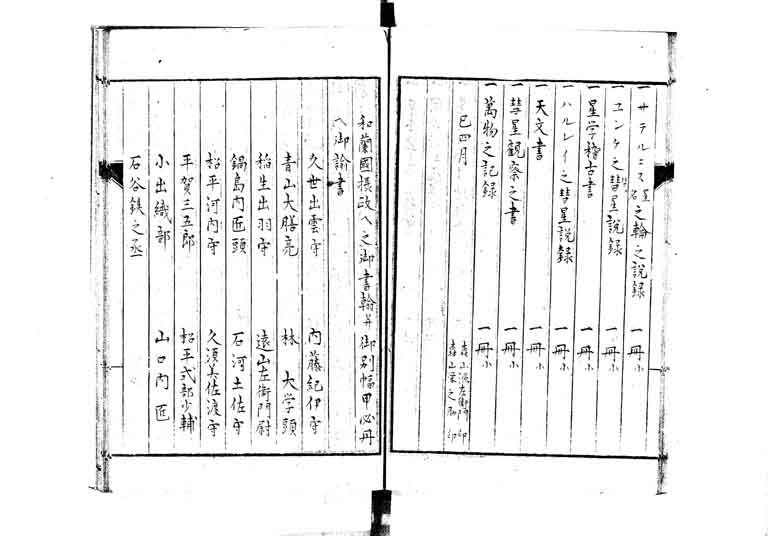 一サテルニス星之輪之説録 一冊小
一ユンケ之彗星説録 一冊小
一星学稽古書 一冊小
一ハルレイ之彗星説録 一冊小
一天文書 一冊小
一彗星観察之書 一冊小
一萬物之記録 一冊小
巳四月
森山源左衛門 印
森山栄之助 印
和蘭國摂政へ之御書翰并御別幅甲必丹
へ御諭書
久世出雲守 内藤紀伊守
青山大膳亮 林 大学頭
稲生出羽守 遠山左衛門尉
鍋島内匠頭 石河土佐守
松平河内守 久須美佐渡守
平賀三五郎 松平式部少輔
小出織部 山口内匠
石谷鉄之丞